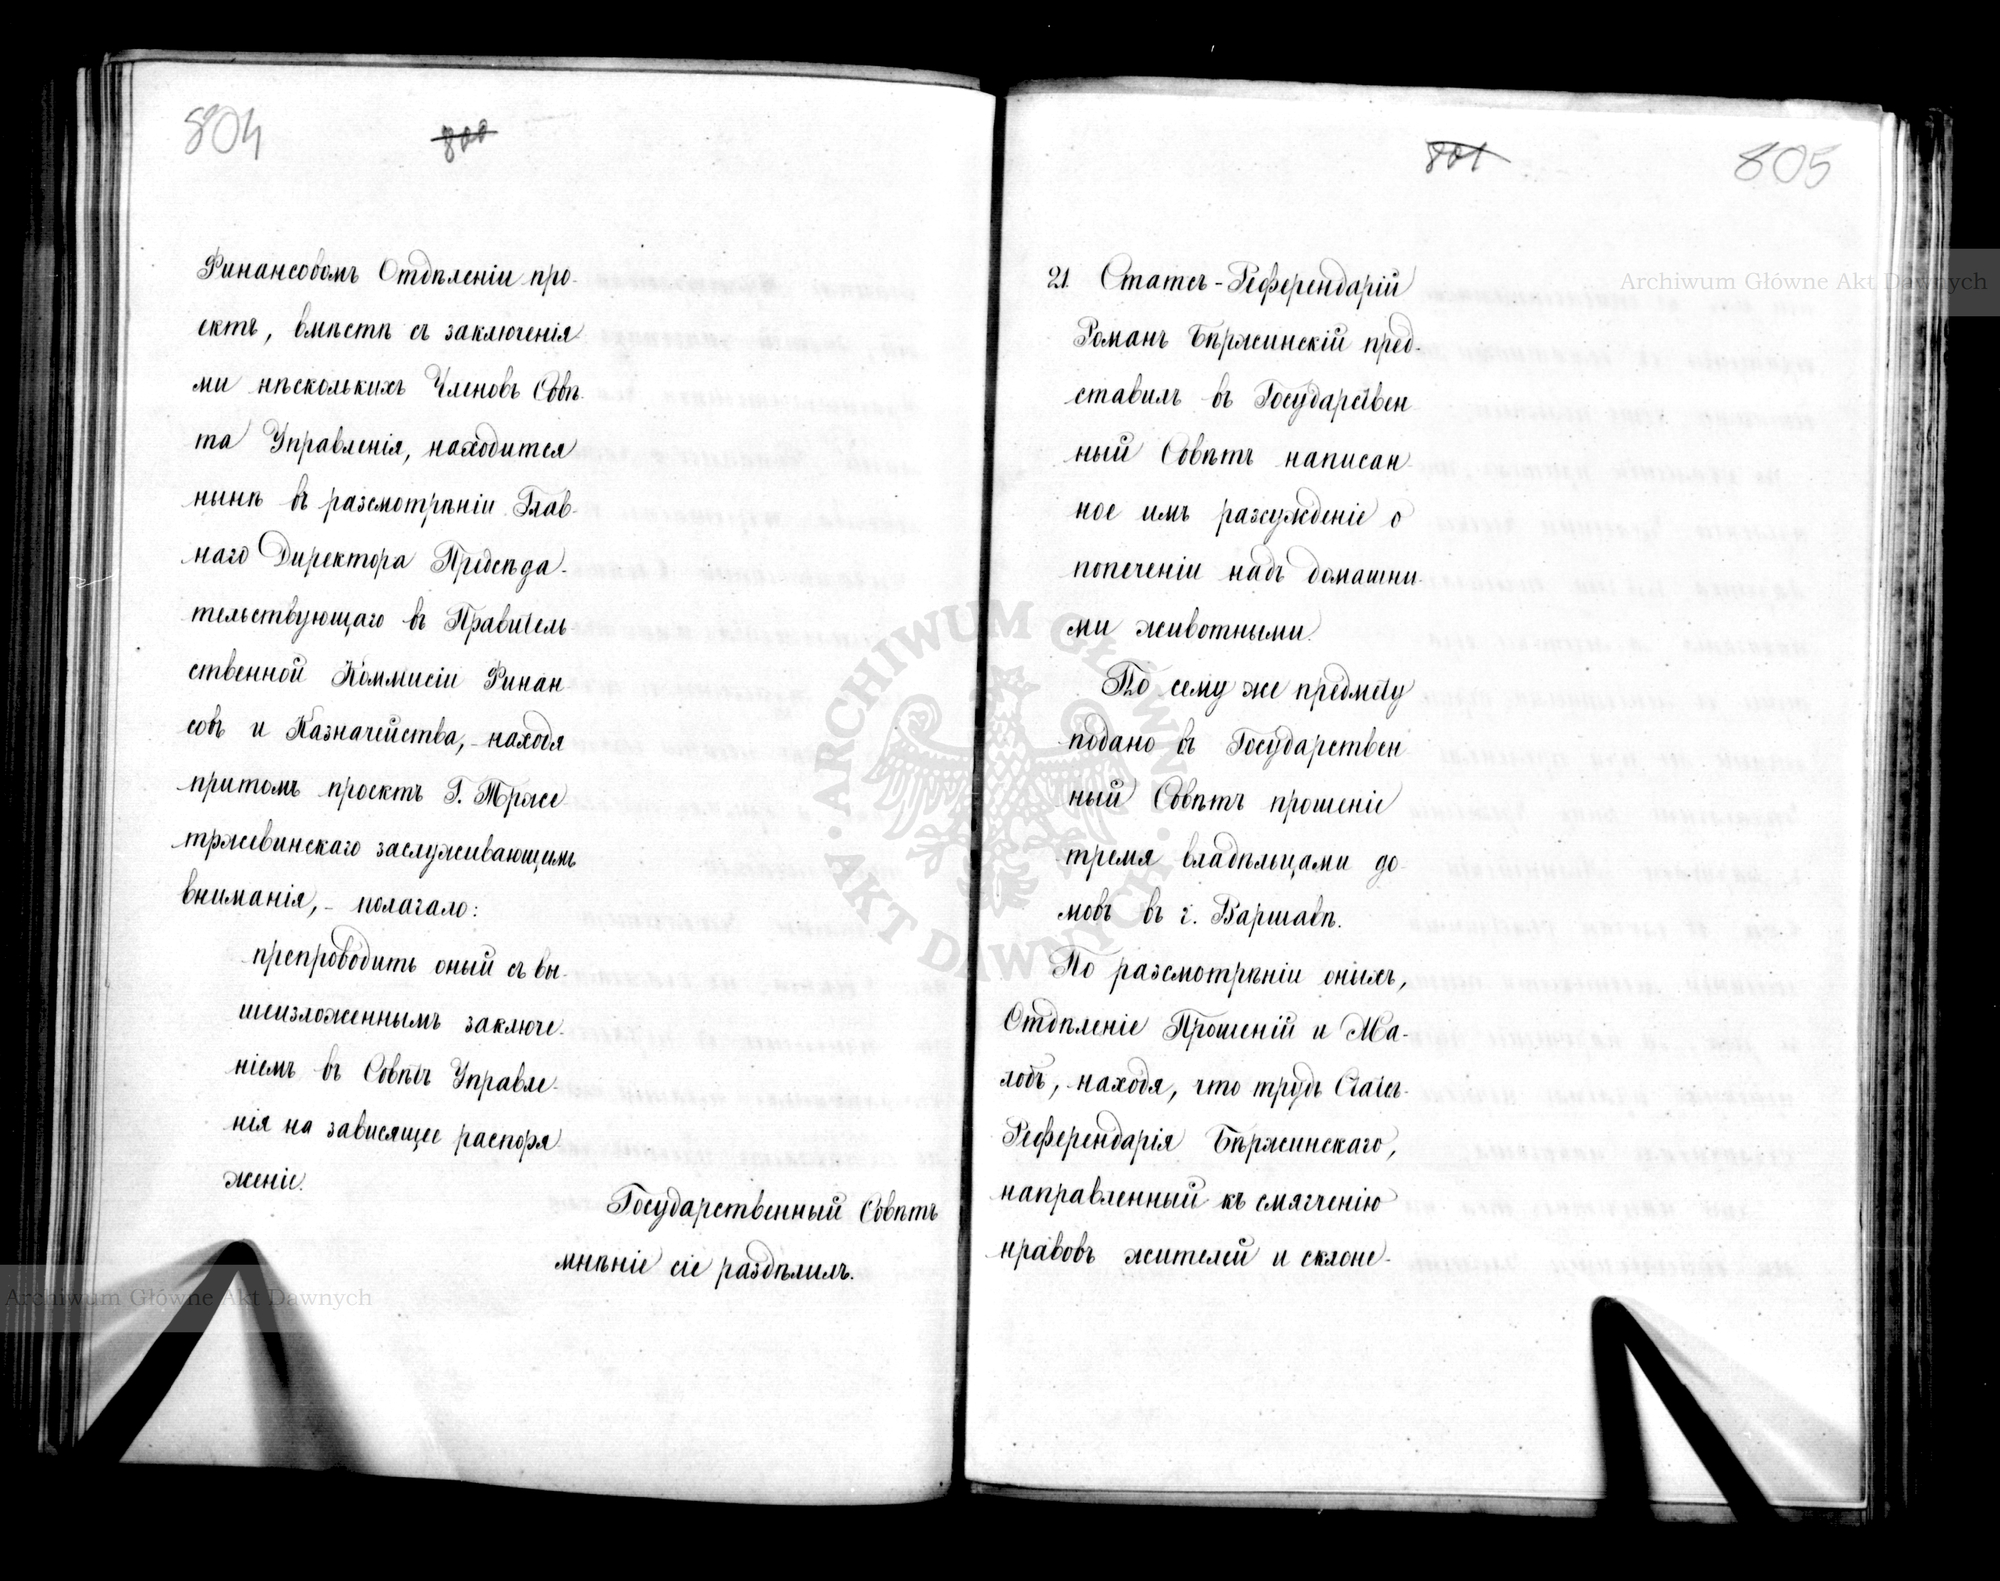 804
800
Финансовомъ Отдѣленіи про-
ектъ, вмѣстѣ съ заключенія-
ми нѣсколькихъ Членовъ Совѣ-
та Управленія, находится
нынѣ въ разсмотрѣніи Глав-
наго Директора Предсѣда-
тельствующаго въ Правитель-
ственной Коммисіи Финан-
совъ и Казначейства, - находя
притомъ проектъ Г. Тржe-
тржевинскаго заслуживающимъ
вниманія, - полагало:
препроводить оный съ вы-
шеизложеннымъ заключе-
ніемъ въ Совѣтъ Управле-
нія на зависящее распоря-
женіе.
Государственный Совѣтъ
мнѣніе сіе раздѣлилъ.
801
805
21. Статсъ-Референдарій
Романъ Бѣржинскій пред-
ставилъ въ Государствен-
ный Совѣтъ написан-
ное имъ разсужденіе о
попеченіи надъ домашни-
ми животными.
По сему же предмету
подано въ Государствен-
ный Совѣтъ прошеніе
тремя владѣльцами до-
мовъ въ г. Варшавѣ.
По разсмотрѣніи оныхъ,
Отдѣленіе Прошеній и Жа-
лобъ, - находя, что трудъ Статсъ-
Референдарія Бѣржинскаго,
направленный къ смягченію
нравовъ жителей и склоне-
Archiwum Główne Akt Dawnych
Archiwum Główne Akt Dawnych
ARCHIWUM GŁÓWNE
AKT DAWNYCH